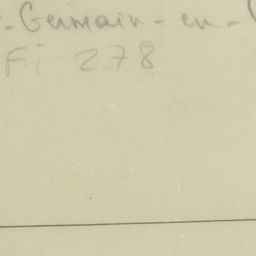 -Germain-en-
Fi 278